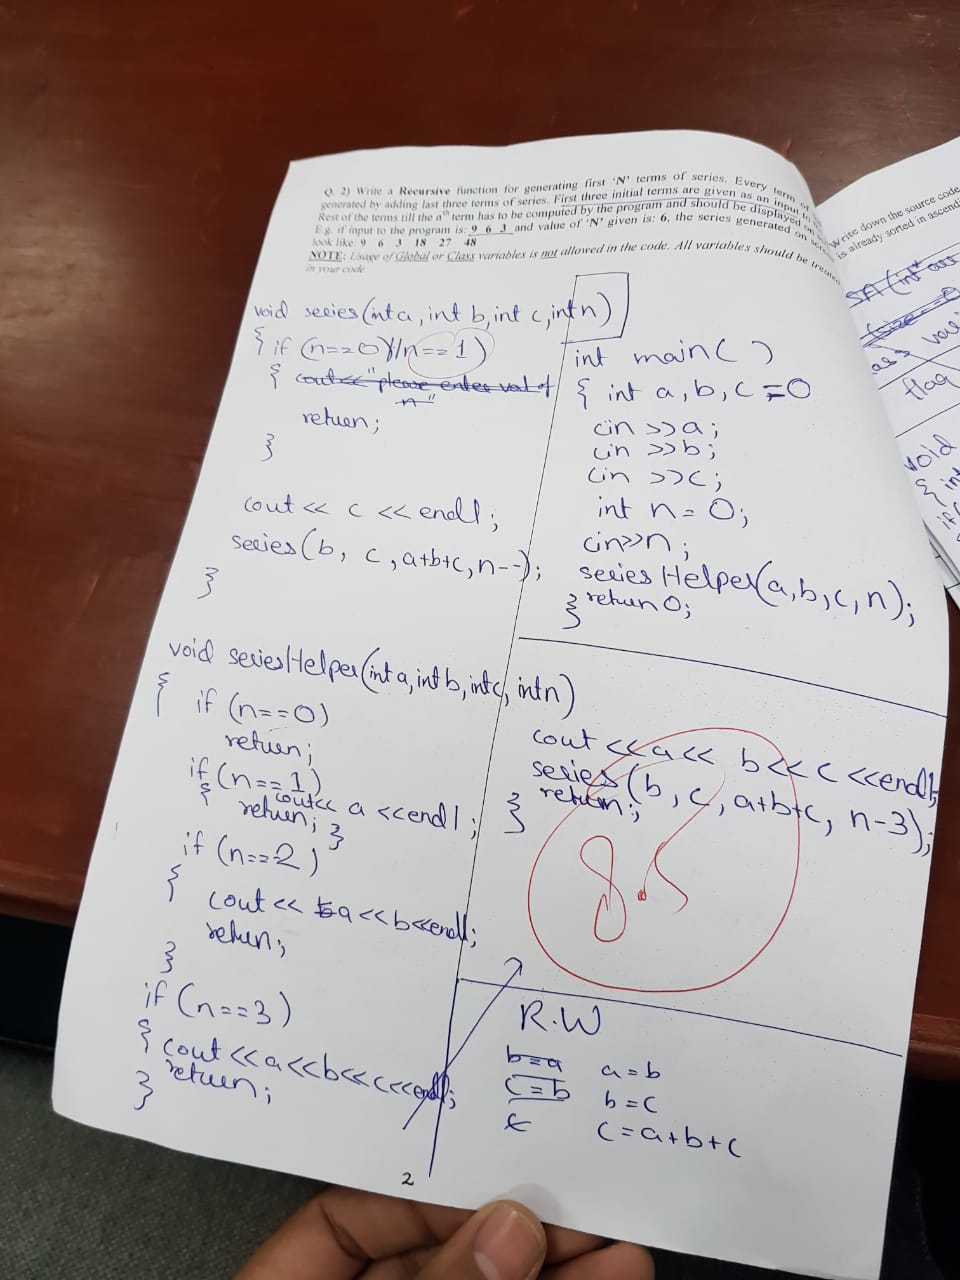 Q. 2) Write a Recursive function for generating first 'N' terms of series. Every term of
generated by adding last three terms of series. First three initial terms are given as an input to
Rest of the terms till the nth term has to be computed by the program and should be displayed on
E.g. if input to the program is: 9 6 3 and value of 'N' given is: 6, the series generated on
look like: 9 6 3 18 27 48
NOTE: Usage of Global or Class variables is not allowed in the code. All variables should be
in your code.
void series(int a, int b, int c, int n)
{ if (n==0 || n==1)
{ cout<<"please enter val of
n"
return;
}
cout << c << endl;
series(b, c, a+b+c, n--);
}
int main()
{ int a, b, c = 0
cin >> a;
cin >> b;
cin >> c;
int n = 0;
cin>>n;
series Helper(a,b,c,n);
return 0;
}
void seriesHelper(int a, int b, int c, int n)
{ if (n==0)
return;
if (n==1)
{ cout<< a <<endl;
return; }
if (n==2)
{
cout << a<<b<<endl;
return;
}
if (n==3)
{ cout <<a<<b<<c<<endl;
return;
}
cout <<a<< b<<c<<endl;
series(b, c, a+b+c, n-3);
return;
}
8.5
R.W
b=a a=b
c=b b=c
c=a+b+c
2
Write down the source code
is already sorted in ascend
SA(int* arr
(size==0
flag
void
{ int
if(